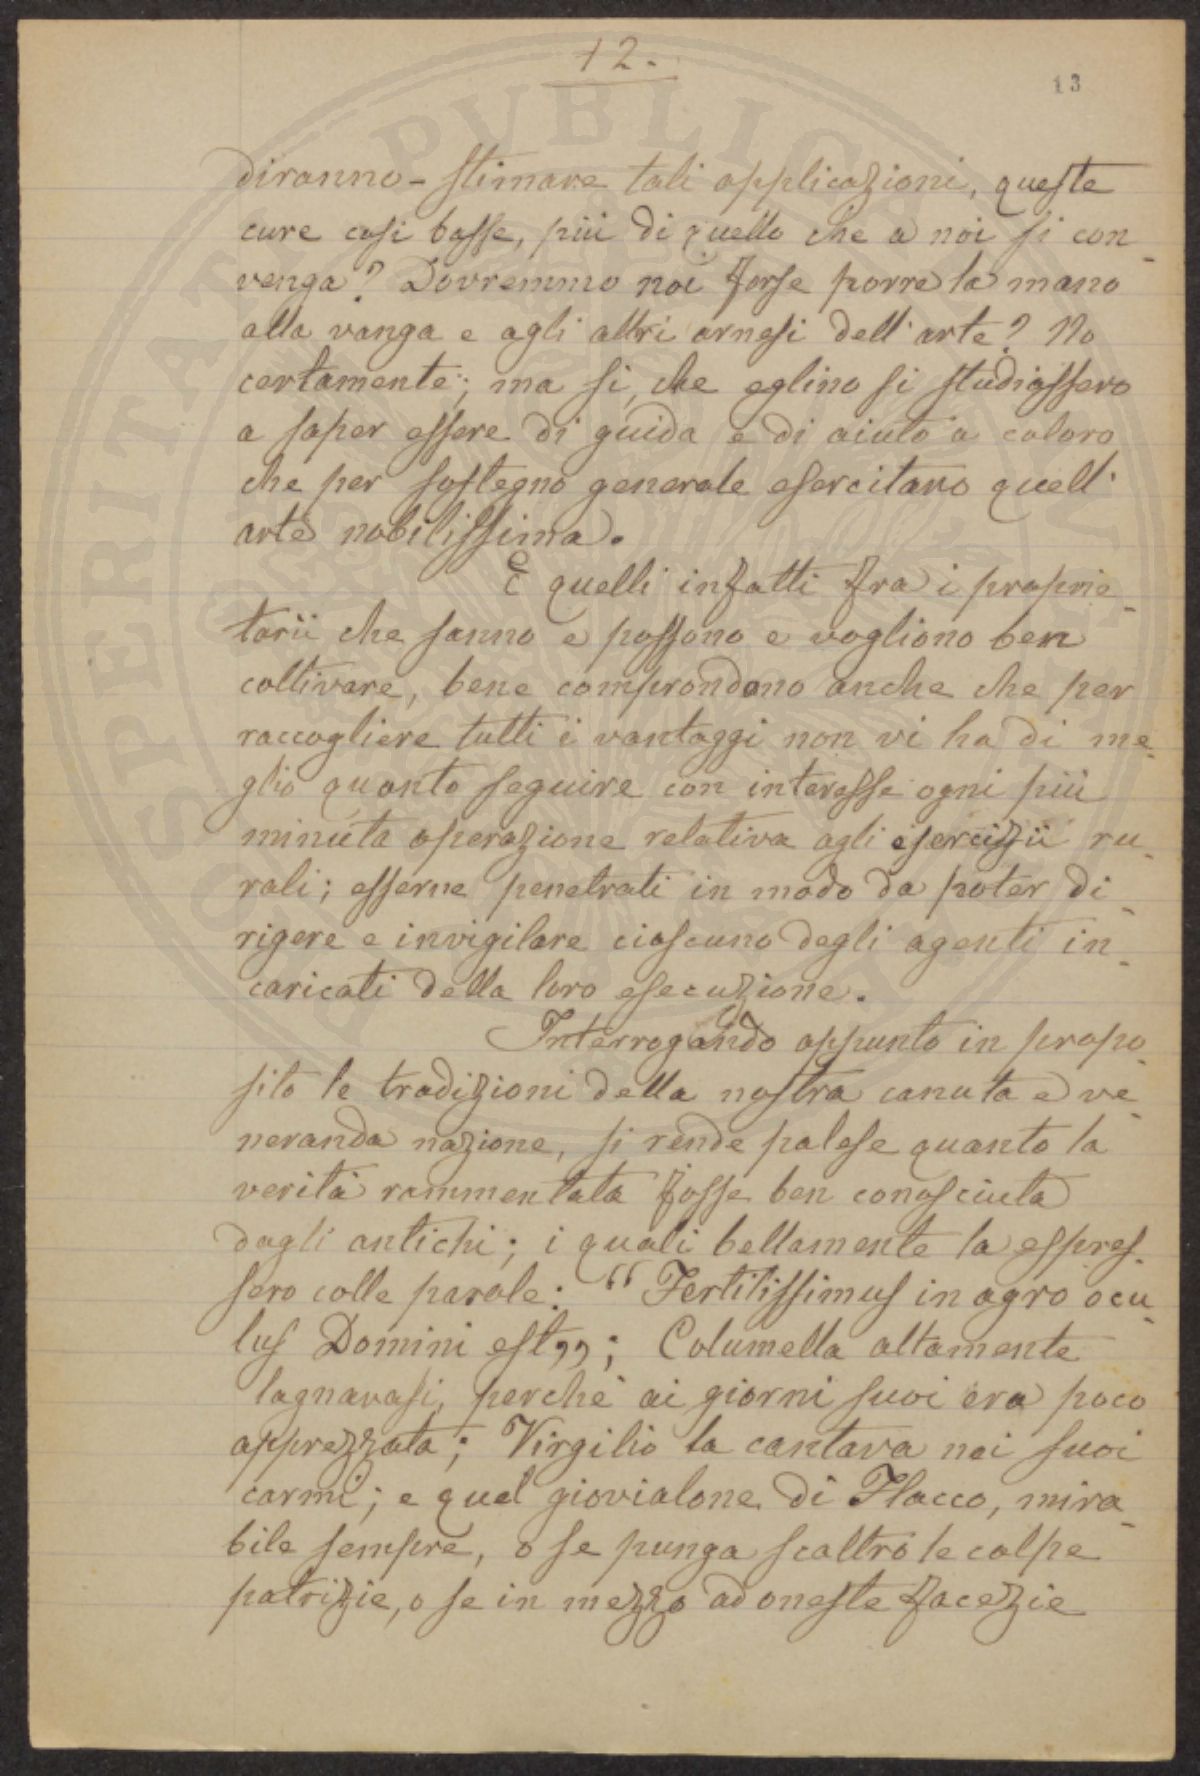 12.
13
diranno - stimare tali applicazioni, queste
cure così basse, più di quello che a noi si con-
venga? Dovremmo noi forse porre la mano
alla vanga e agli altri arnesi dell'arte? No
certamente; ma si, che eglino si studiassero
a saper essere di guida e di aiuto a coloro
che per sostegno generale esercitano quell'
arte nobilissima.
E quelli infatti fra i proprie-
tarii che sanno e possono e vogliono ben
coltivare, bene comprendono anche che per
raccogliere tutti i vantaggi non vi ha di me-
glio quanto seguire con interesse ogni più
minuta operazione relativa agli esercizii ru-
rali; esserne penetrati in modo da poter di-
rigere e invigilare ciascuno degli agenti in-
caricati della loro esecuzione.
Interrogando appunto in propo-
sito le tradizioni della nostra canuta e ve-
neranda nazione, si rende palese quanto la
verità rammentata fosse ben conosciuta
dagli antichi; i quali bellamente la espres-
sero colle parole: "Fertilissimus in agro ocu-
lus Domini est,,; Columella altamente
lagnavasi, perchè ai giorni suoi era poco
apprezzata; Virgilio la cantava nei suoi
carmi; e quel giovialone di Flacco, mira-
bile sempre, o se punga scaltro le colpe
patrizie, o se in mezzo ad oneste facezie